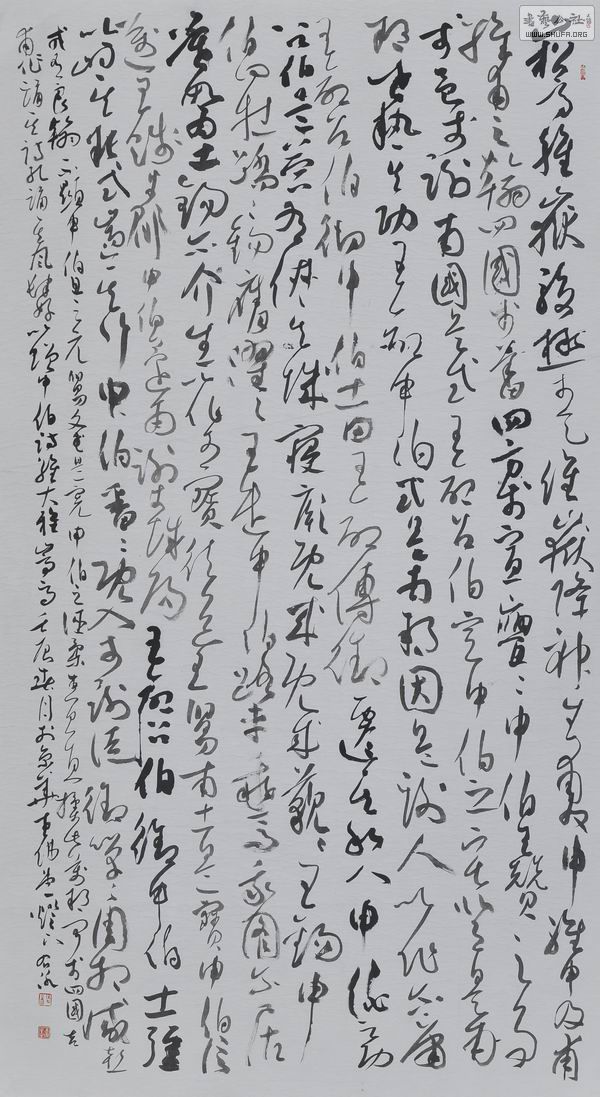 崧高維嶽駿極于天維嶽降神生甫及申維申及甫
維周之翰四國于蕃四方于宣亹々申伯王纘之事
于邑于謝南國是式王命召伯定申伯之宅登是南
邦世執其功王命申伯式是南邦因是謝人以作爾庸
王命召伯徹申伯土田王命傅御遷其私人申伯之功
召伯是營有俶其城寢廟既成既成藐々王錫申
伯四牡蹻々鉤膺濯々王遣申伯路車乘馬我圖爾居
莫如南土錫爾介圭以作爾寶往近王舅南土是保申伯信
邁王餞于郿申伯還南謝于誠歸王命召伯徹申伯土疆
以峙其粻式遄其行申伯番々既入于謝徒御嘽々周邦咸喜
戎有良翰不顯申伯王之元舅文武是憲申伯之德柔惠且直揉此萬邦聞于四國吉
甫作誦其詩孔碩其風肆好以贈申伯詩經大雅嵩高壬辰春月於京華燈下
書藝公社
WWW.SHUFA.ORG